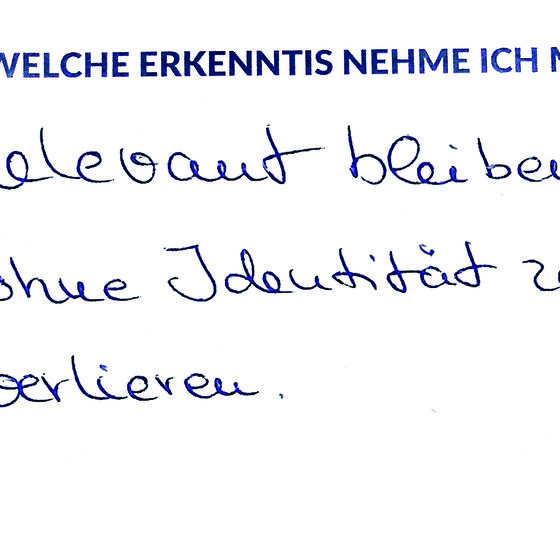 WELCHE ERKENNTIS NEHME ICH
elevant bleiben
ohne Identität z
verlieren.